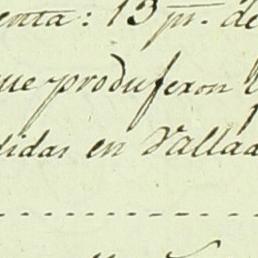 enta: 13 pn. de
ue produxeron l
didas en Vallad